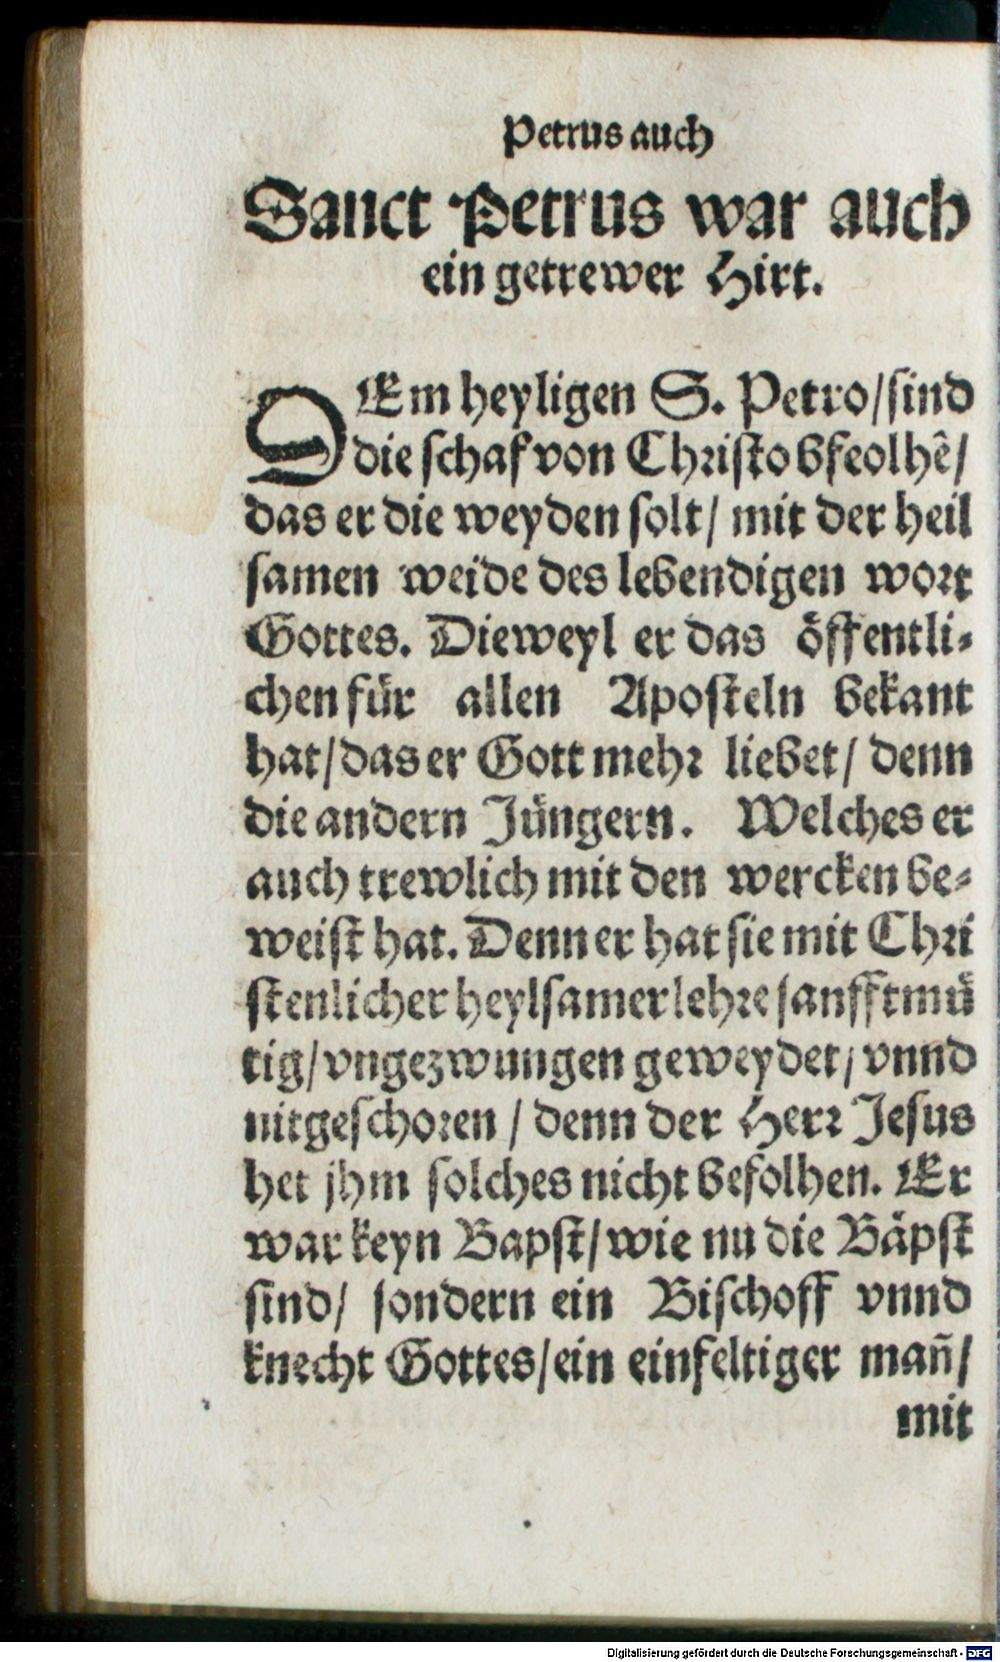 Petrus auch
Sanct Petrus war auch
ein getrewer Hirt.
DEm heyligen S. Petro/sind
die schaf von Christo bfeolhē/
das er die weyden solt/ mit der heil
samen weide des lebendigen wort
Gottes. Dieweyl er das öffentli-
chen für allen Aposteln bekant
hat/das er Gott mehr liebet/ denn
die andern Jüngern. Welches er
auch trewlich mit den wercken be-
weist hat. Denn er hat sie mit Chri
stenlicher heylsamer lehre sanfftmü
tig/vngezwungen geweydet/ vnnd
nitgeschoren / denn der Herr Jesus
het jhm solches nicht befolhen. Er
war keyn Bapst/wie nu die Bäpst
sind/ sondern ein Bischoff vnnd
knecht Gottes/ein einfeltiger man̄/
mit
Digitalisierung gefördert durch die Deutsche Forschungsgemeinschaft - DFG